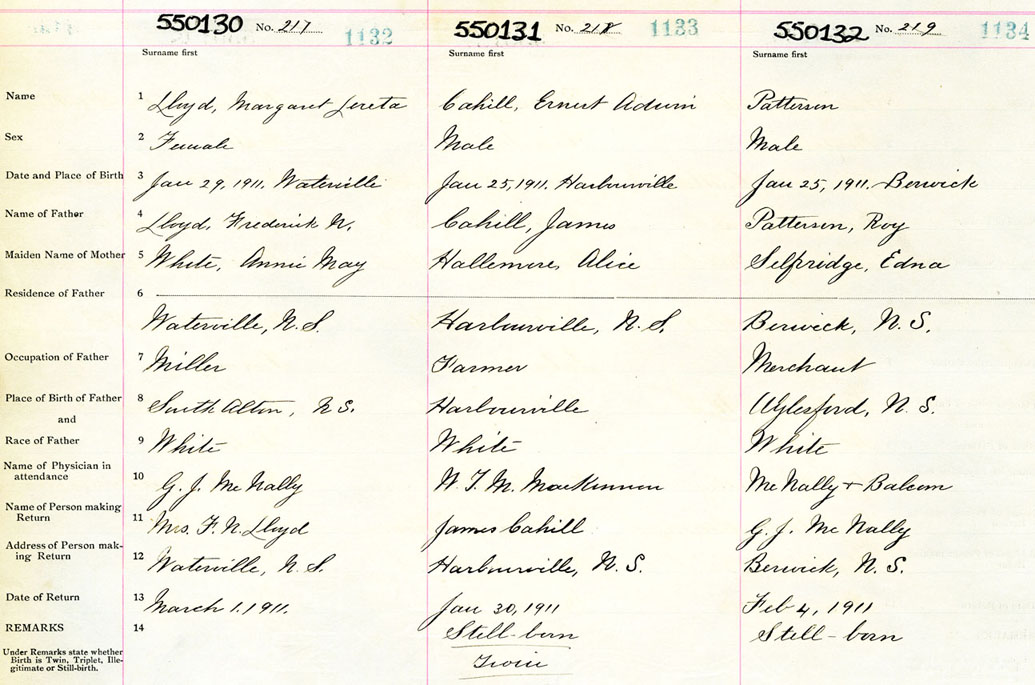 550130 No. 217 1132 550131 No. 218 1133 550132 No. 219 1134
Surname first Surname first Surname first
Name 1 Lloyd, Margaret Lereta Cahill, Ernest Adwin Patterson
Sex 2 Female Male Male
Date and Place of Birth 3 Jan 29, 1911. Waterville Jan 25, 1911. Harbourville Jan 25, 1911. Berwick
Name of Father 4 Lloyd, Frederick N. Cahill, James Patterson, Roy
Maiden Name of Mother 5 White, Annie May Alice Selfridge, Edna
Residence of Father 6
Waterville, N.S. Harbourville, N.S. Berwick, N.S.
Occupation of Father 7 Miller Farmer Merchant
Place of Birth of Father 8 South Alton, N.S. Harbourville Aylesford, N.S.
and
Race of Father 9 White White White
Name of Physician in
attendance 10 G. J. McNally W. T. M. MacKinnon McNally + Balcom
Name of Person making
Return 11 Mrs. F. N. Lloyd James Cahill G. J. McNally
Address of Person mak-
ing Return 12 Waterville, N.S. Harbourville, N.S. Berwick, N.S.
Date of Return 13 March 1. 1911. Jan 30, 1911 Feb 4, 1911
REMARKS 14 Still-born Still-born
Under Remarks state whether
Birth is Twin, Triplet, Ille-
gitimate or Still-birth.
Twin